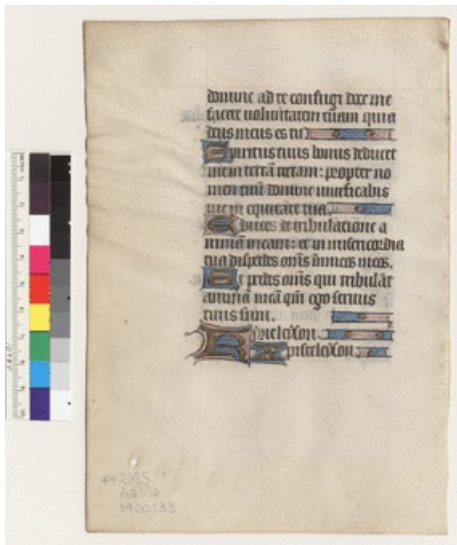 domine ad te confugi doce me
facere voluntatem tuam quia
deus meus es tu
Spiritus tuus bonus deducet
me in terrā rectam: propter no
men tuū domine vivificabis
me in equitate tua.
Educes de tribulatione a
nimam meam: et in misericordia
tua disperdes oms inimicos meos.
Et perdes oms qui tribulāt
animā meā qm̄ ego servus
tuus sum.
Kyrieleyson.
Xpisteleyson.
A2M2
1900.133